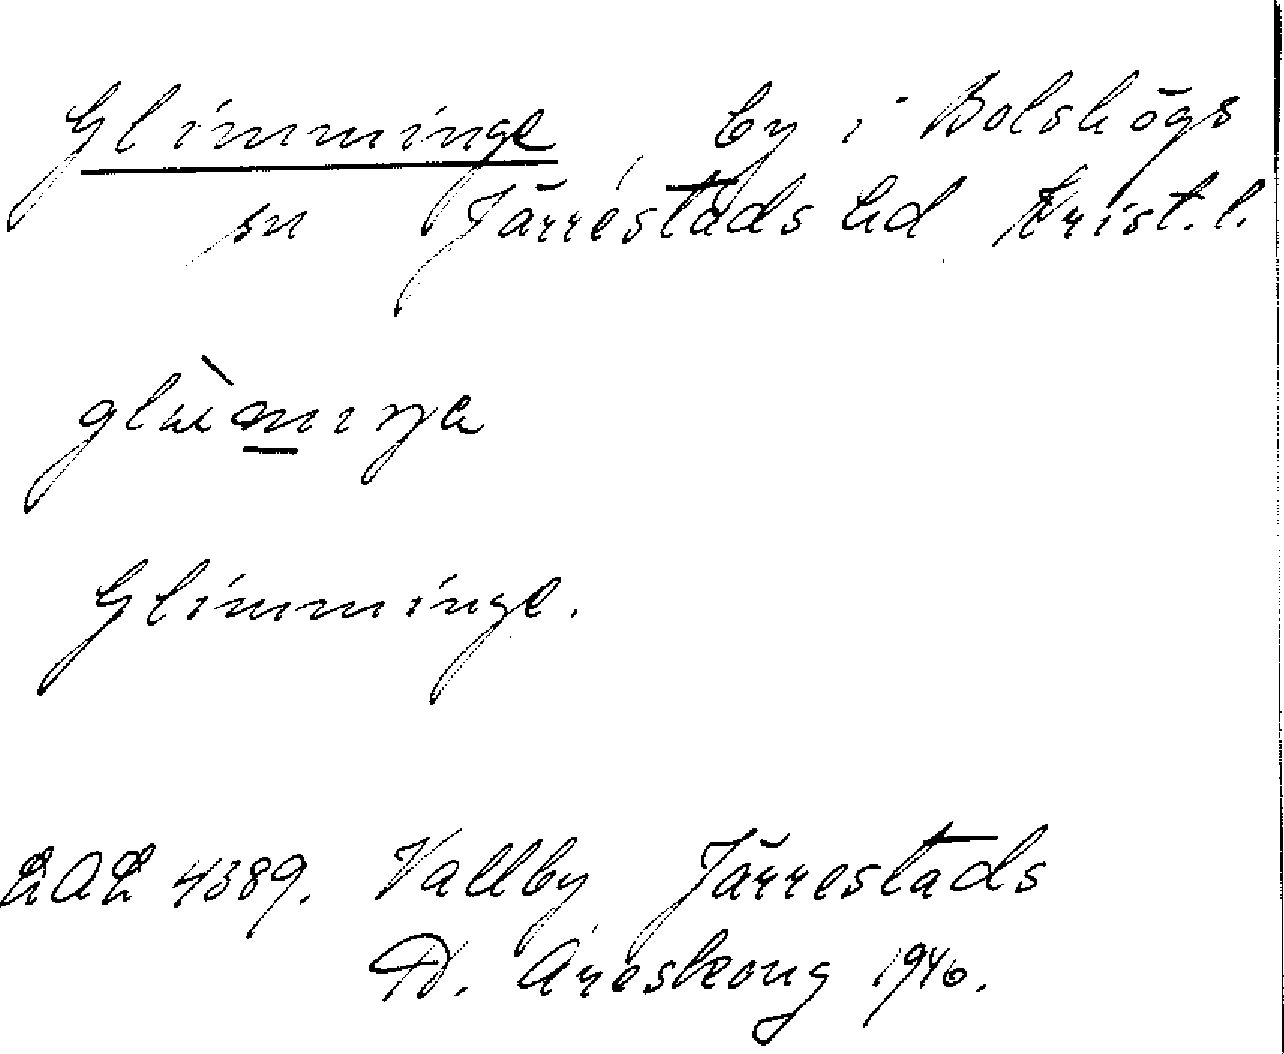 Glimminge, by i Bolshögs
sn Järrestads hd Krist. l.
Glimminge.
4389. Vallby Järrestads
D. Areskoug 1940.